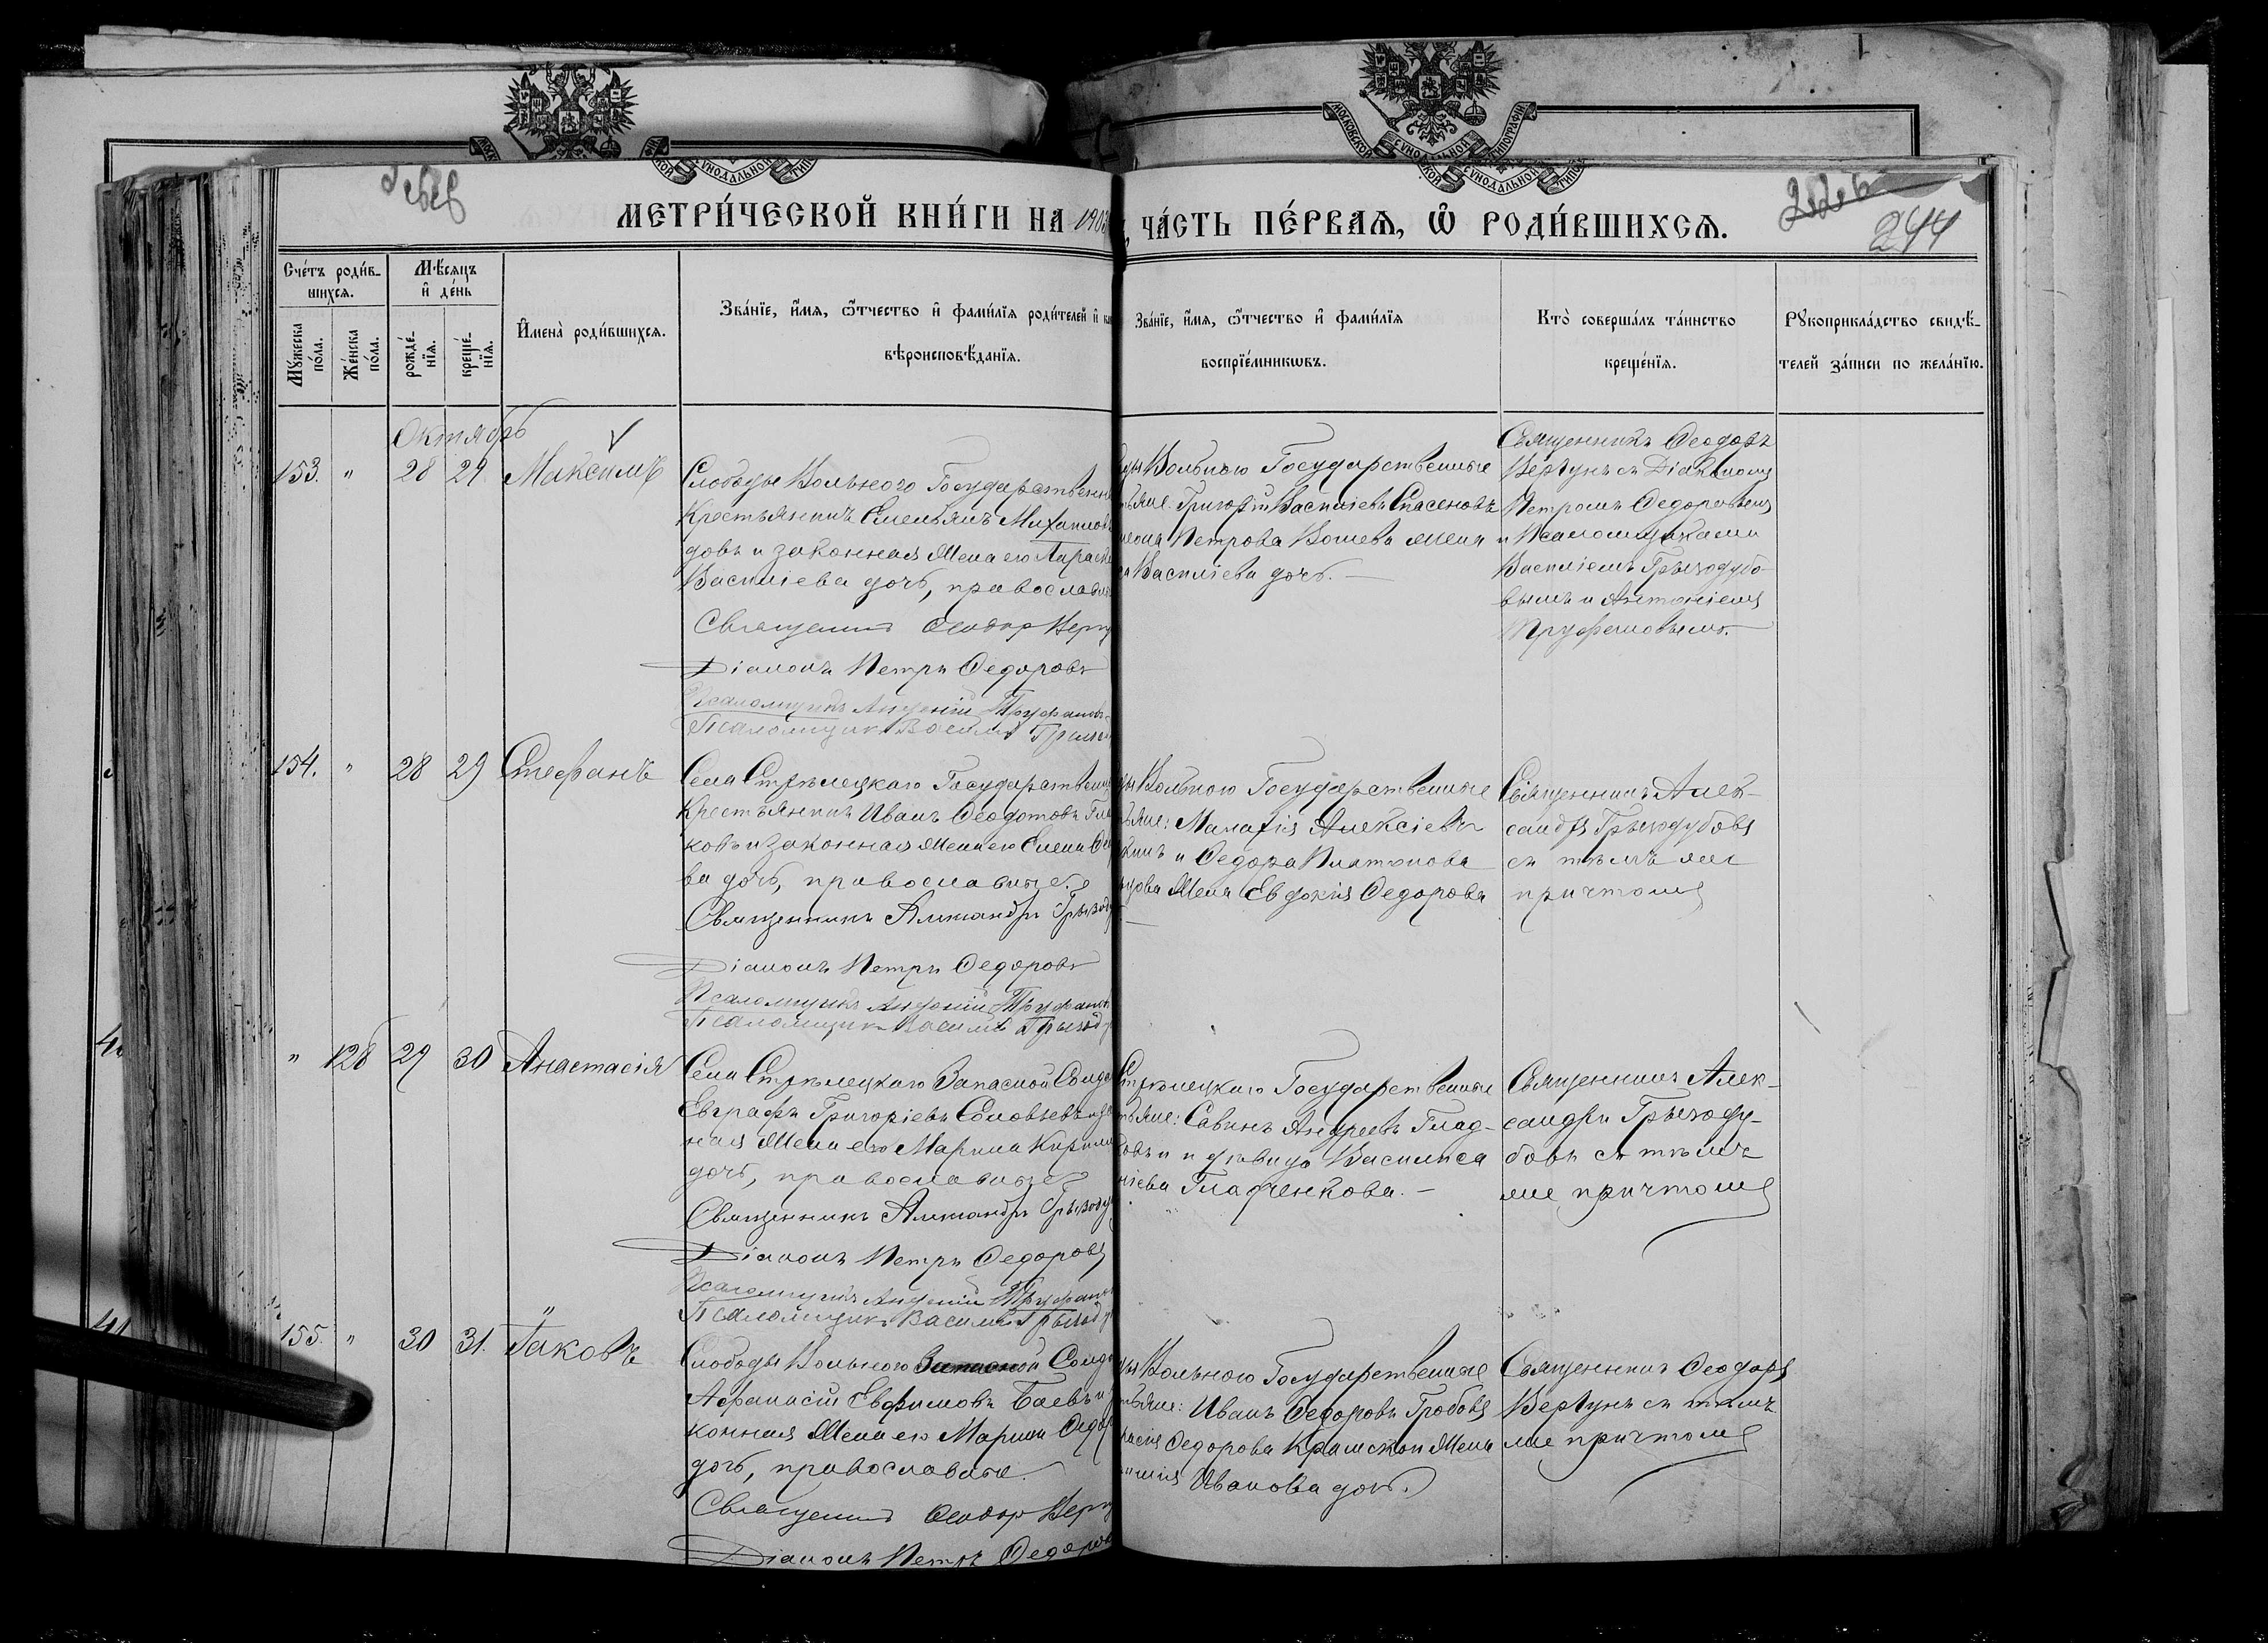 МОСКОВСКОЙ СѴНОДАЛЬНОЙ ТИПОГРАФІИ
МЕТРИ́ЧЕСКОЙ КНИ́ГИ НА 190
ЧА́СТЬ ПЕ́РВАѦ, Ѽ РОДИ́ВШИХСѦ.
244
Сче́тъ роди́в-
шихсѧ.
Мѣ́сѧцъ
и҆ де́нь
Мꙋ́жеска
по́ла.
Же́нска
по́ла.
рожде́-
нїѧ.
креще́-
нїѧ.
И҆мена̀ роди́вшихсѧ.
Зва́нїе, и҆́мѧ, ѻ҆́тчество и҆ фами́лїѧ роди́телей и҆
вѣроисповѣ́данїѧ.
Зва́нїе, и҆́мѧ, ѻ҆́тчество и҆ фами́лїѧ
воспрїе́мникѡвъ.
Кто̀ соверша́лъ та́инство
креще́нїѧ.
Рꙋкоприкла́дство свидѣ́-
телей за́писи по жела́нїю.
Октябрь
153. " 28 29 Максимъ
Слободы Вольного Государственн
Крестьянинъ Емельянъ Михаилов
довъ и законная жена его Параск
Василіева дочь, православн
Священник Феодор Верт
Діаконъ Петръ Федоровъ
Псаломщикъ Антоній Труфанов
Псаломщик Василій Грызод
Вольного Государственные
Григорій Василіевъ Спасеновъ
Петрова жена
Василіева дочь. —
Священникъ Феодоръ
Вертунъ съ Діакономъ
Петромъ Федоровымъ
и Псаломщиками
Василіемъ Грызодубо-
вымъ и Антоніемъ
Труфановымъ.
154. " 28 29 Стефанъ
Села Стрѣлецкаго Государственн
Крестьянинъ Иванъ Феодотовъ Гла
ковъ и законная жена его Елена
ва дочь, православные.
Священникъ Александръ Грызод
Діаконъ Петръ Федоровъ
Псаломщикъ Антоній Труфанов
Псаломщик Василій Грызод
Вольного Государственные
Малахія Алексіевъ
кинъ и Федора Платонова
жена Евдокія Федорова
Священникъ Алек-
сандръ Грызодубовъ
съ тѣмъ же
причтомъ
" 128 29 30 Анастасія
Села Стрѣлецкаго Запасной Солда
Евграфъ Григоріевъ Соловьевъ и за
ная жена его Марина Кирил
дочь, православные
Священникъ Александръ Грызоду
Діаконъ Петръ Федоровъ
Псаломщикъ Антоній Труфанов
Псаломщик Василій Грызод
Стрѣлецкаго Государственные
Савинъ Андреевъ Глад-
ковъ и дѣвица Василиса
Гладченкова. —
Священникъ Алек-
сандръ Грызоду-
бовъ съ тѣмъ
же причтомъ
155. " 30 31. Іаковъ
Слободы Вольного Запасной Солда
Афанасій Евфимовъ Баевъ и
конная жена его Марина Федор
дочь, православные.
Священник Феодор Верт
Діаконъ Петръ Федоров
Вольного Государственные
Иванъ Федоровъ Гробовъ
Федорова Крамской жена
Иванова дочь.
Священникъ Феодоръ
Вертунъ съ тѣмъ
же причтомъ